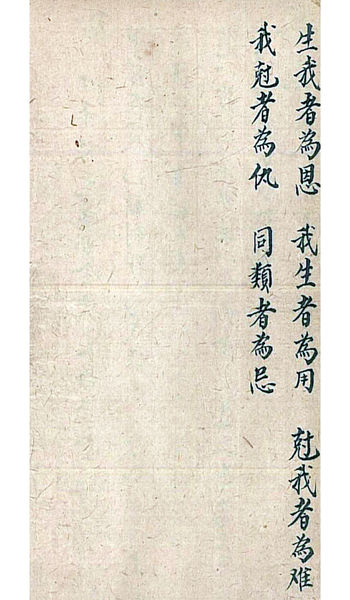 生我者為恩 我生者為用 尅我者為难
我尅者為仇 同類者為忌